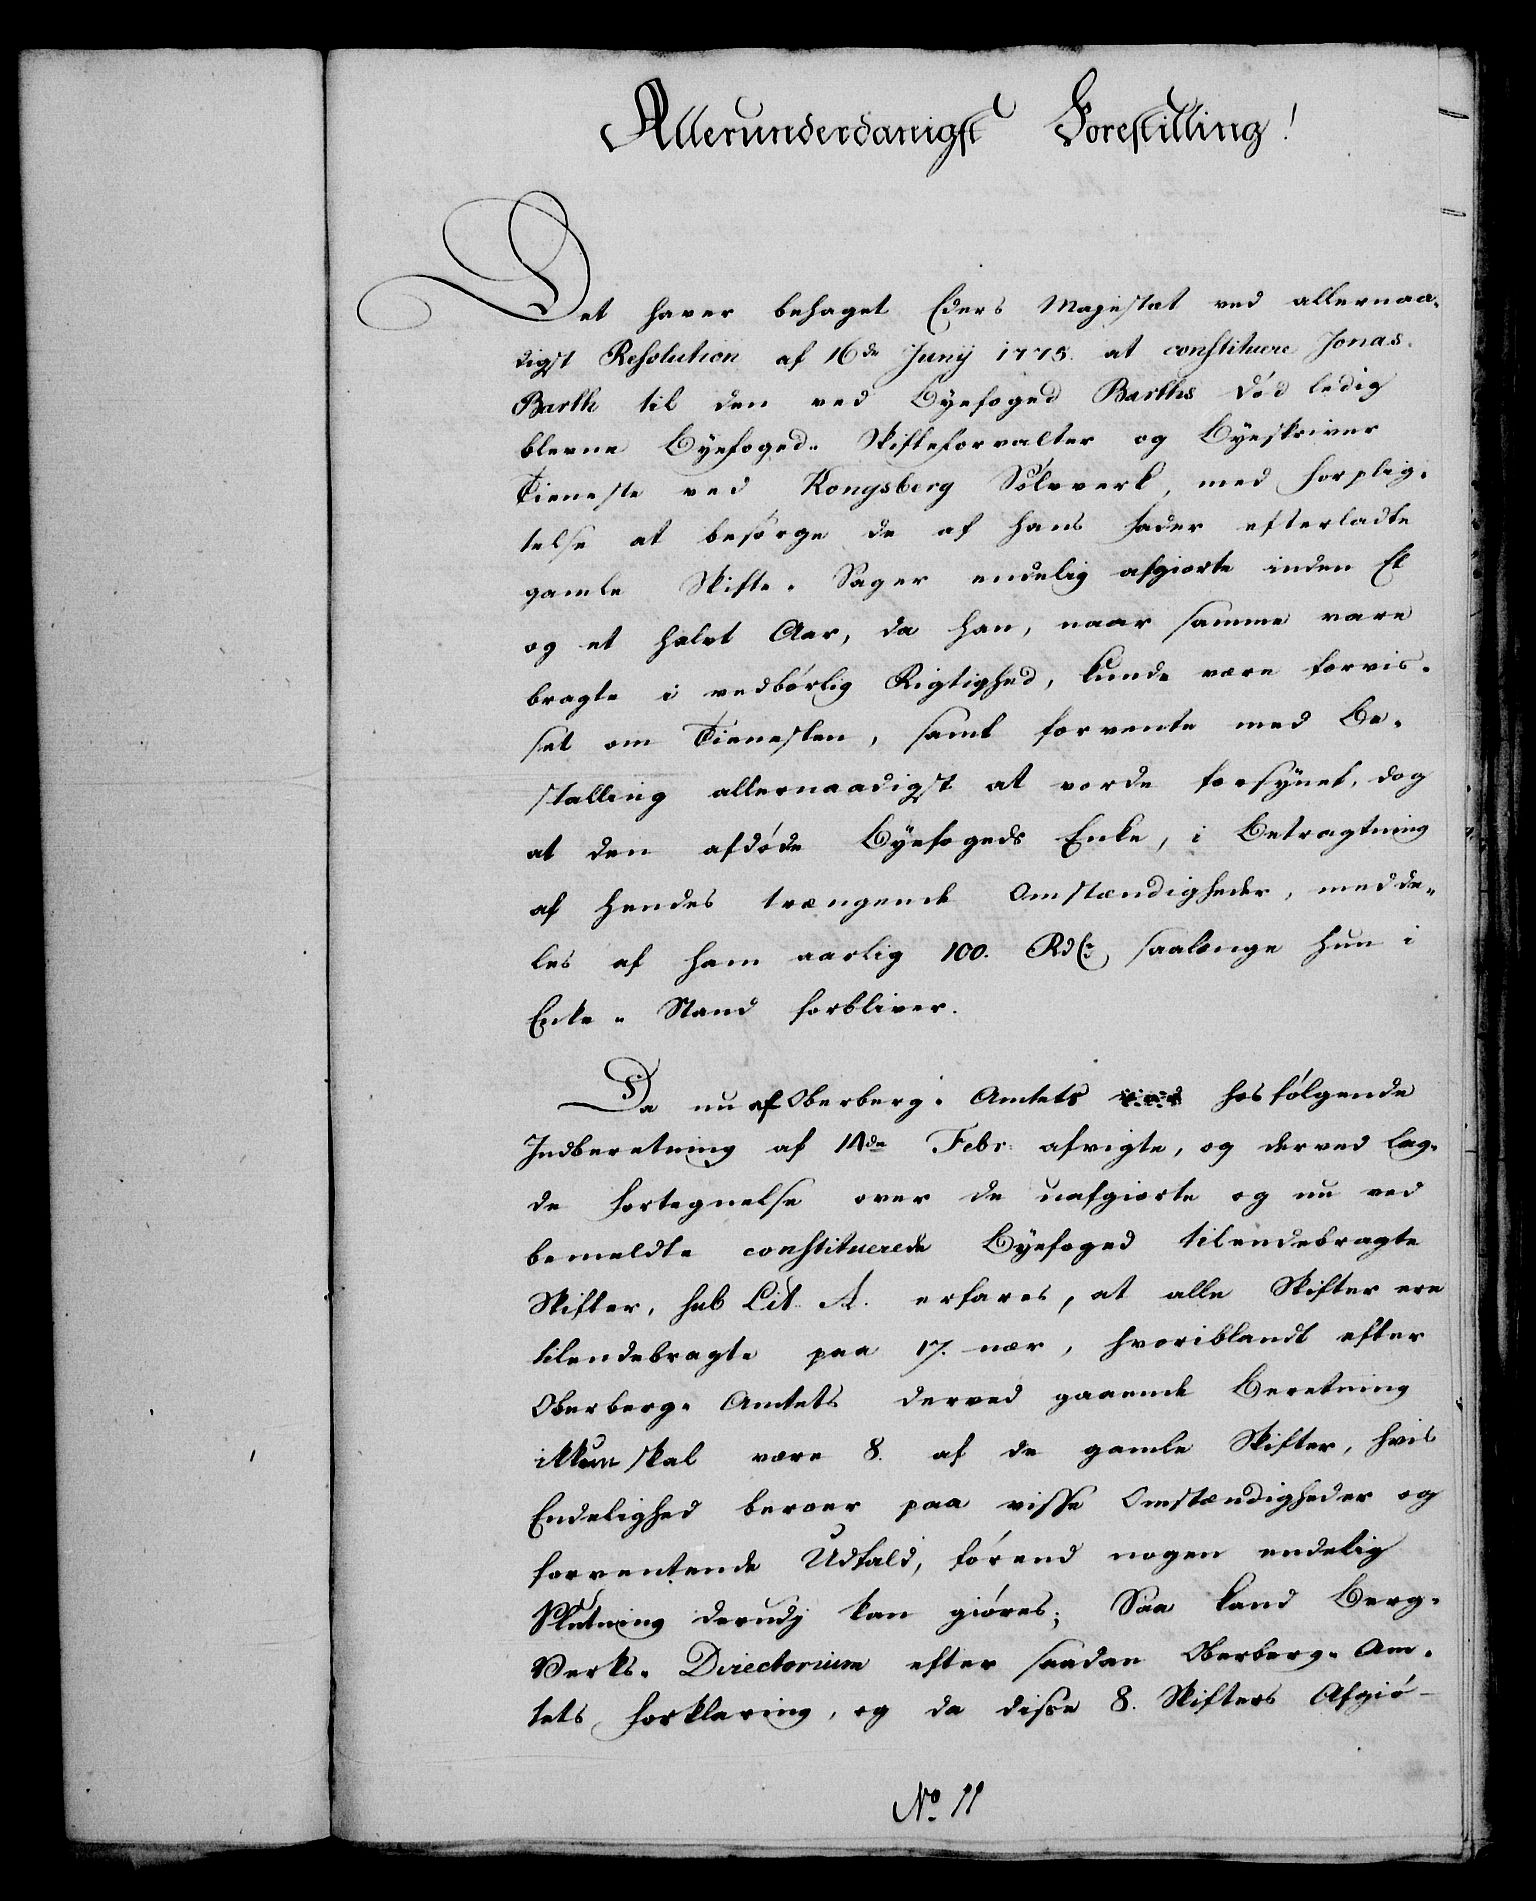 Allerunderdanigst Forestilling!
Det haver behaget Eders Majestæt ved allernaa-
digst Resolution af 16de Junij 1775. at constituere Jonas
Barth til den ved Byefoged Barths Död ledig
blevne Byefoged- Skifteforvalter og Byeskriver
Tieneste ved Kongsberg Sölvverk, med Forplig-
telse at besörge de af hans Fader efterladte
gamle Skifte- Sager endelig afgiorte inden Et
og et halvt Aar, da han, naar samme vare
bragte i vedbörlig Rigtighed, kunde være forvis-
set om Tienesten, samt forvente med Be-
stalling allernaadigst at vorde forsÿnet, dog
at den afdöde Bÿefogeds Enke, i Betragtning
af hendes trængende Omstændigheder, medde-
les af ham aarlig 100. Rdlr saalænge hun i
Enke- Stand forbliver.
Da nu af Oberberg- Amtets hosfölgende
Indberetning af 14de Febr. afvigte, og derved lag-
de Fortegnelse over de uafgiorte og nu ved
bemeldte constituerede Bÿefoged tilendebragte
Skifter, sub Lit. A. erfares, at alle Skifter ere
tilendebragte paa 17. nær, hvoriblandt efter
Oberberg- Amtets derved gaaende Beretning
ikkun skal være 8. af de gamle Skifter, hvis
Endelighed beroer paa visse Omstændigheder og
forventende Udfald, förend nogen endelig
Slutning derudj kan giöres; Saa kand Berg-
Verks- Directorium efter saadan Oberberg- Am-
tets Forklaring, og da disse 8. Skifters Afgiö-
No. 11